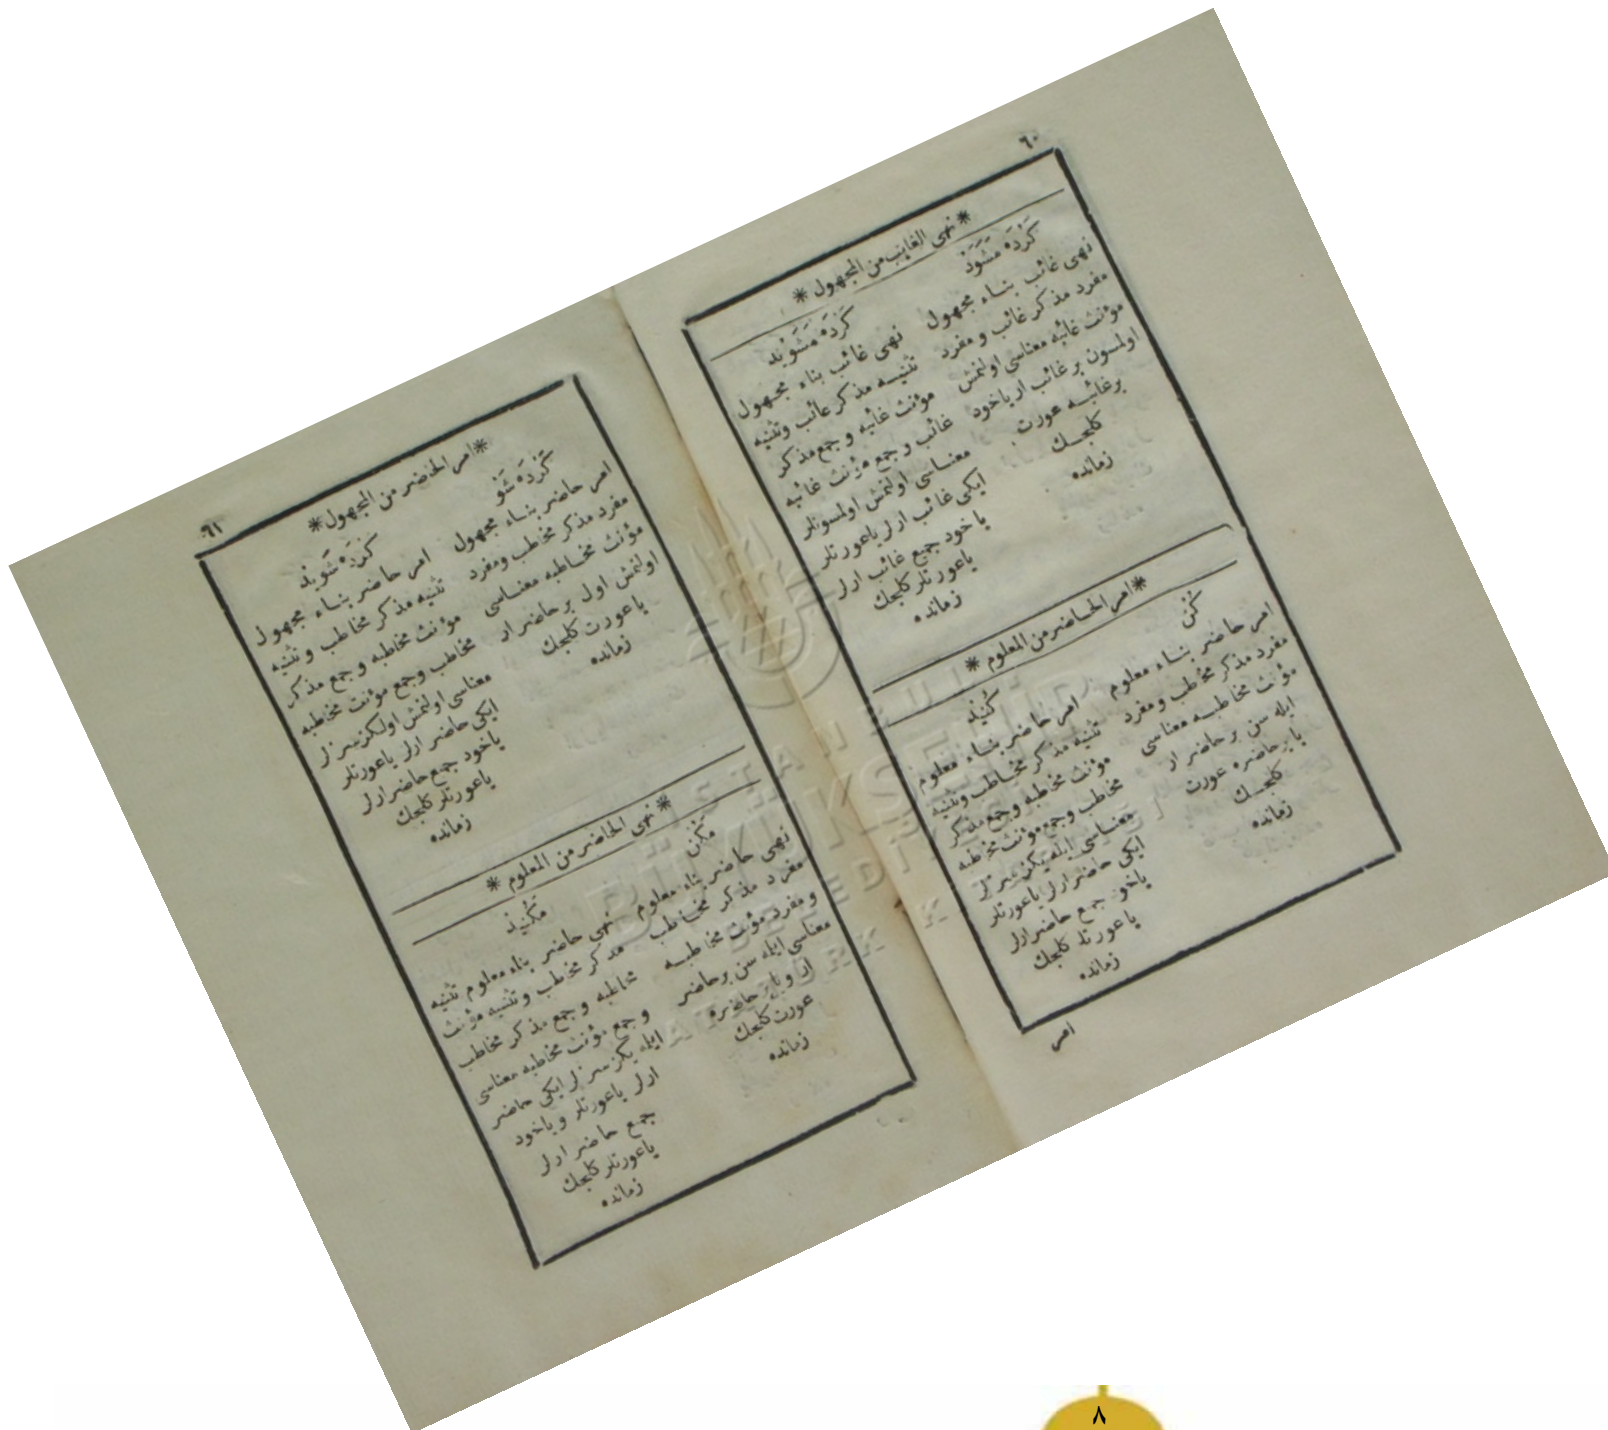 ٦٠
* نهى الغايب من المجهول *
كَرْدَه مَشَوَدْ
نهى غائب بناء مجهول
مفرد مذكر غائب و مفرد
مؤنث غائبه معناسى اولنمش
اولمسون بر غائب ار ياخود
بر غائبه عورت
كلجك
زمانده
كَرْدَه مَشَوَنْد
نهى غائب بناء مجهول
تثنيه مذكر غائب وتثنيه
مؤنث غائبه و جمع مذكر
غائب و جمع مؤنث غائبه
معناسى اولنمش اولمسونلر
ايكى غائب ارلر ياعورتلر
ياخود جمع غائب ارلر
ياعورتلر كلجك
زمانده
* امر الحاضر من المعلوم *
كُنْ
امر حاضر بناء معلوم
مفرد مذكر مخاطب ومفرد
مؤنث مخاطبه معناسى
ايله سن بر حاضر ار
يا بر حاضره عورت
كلجك
زمانده
كُنيد
امر حاضر بناء معلوم
تثنيه مذكر مخاطب وتثنيه
مؤنث مخاطبه وجمع مذكر
مخاطب وجمع مؤنث مخاطبه
معناسى ايله يكز سز لر
ايكى حاضر ارلر ياعورتلر
ياخود جمع حاضر ارلر
ياعورتلر كلجك
زمانده
امر
٦١
* امر الحاضر من المجهول *
كَرْدَه شَوْ
امر حاضر بناء مجهول
مفرد مذكر مخاطب ومفرد
مؤنث مخاطبه معناسى
اولنمش اول بر حاضر ار
يا عورت كلجك
زمانده
كَرْدَه شَويد
امر حاضر بناء مجهول
تثنيه مذكر مخاطب وتثنيه
مؤنث مخاطبه و جمع مذكر
مخاطب وجمع مؤنث مخاطبه
معناسى اولنمش اولكز سز لر
ايكى حاضر ارلر ياعورتلر
ياخود جمع حاضر ارلر
ياعورتلر كلجك
زمانده
* نهى الحاضر من المعلوم *
مَكُنْ
نهى حاضر بناء معلوم
مفرد مذكر مخاطب
ومفرد مؤنث مخاطبه
معناسى ايله سن بر حاضر
ار ويا بر حاضره
عورت كلجك
زمانده
مَكُنيدْ
نهى حاضر بناء معلوم تثنيه
مذكر مخاطب وتثنيه مؤنث
مخاطبه و جمع مذكر مخاطب
وجمع مؤنث مخاطبه معناسى
ايله يكز سز لر ايكى حاضر
ارلر ياعورتلر وياخود
جمع حاضر ارلر
ياعورتلر كلجك
زمانده
İSTANBUL
BÜYÜKŞEHİR
BELEDİYESİ
ATATÜRK KİTAPLIĞI
٨